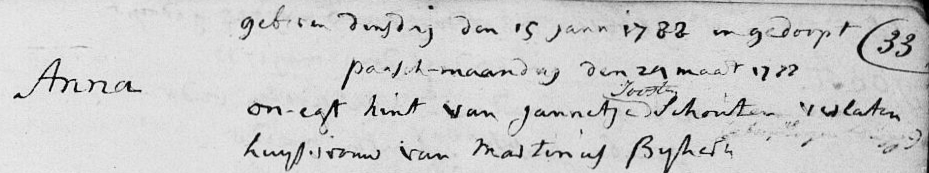 geboren dinsdag den 15 janu 1788 en gedoopt 33
Anna paasch-maandag den 24 maart 1788
Joosten
on-egt kint van Jannetje Schouten verlaten
huysvrouw van Martinus